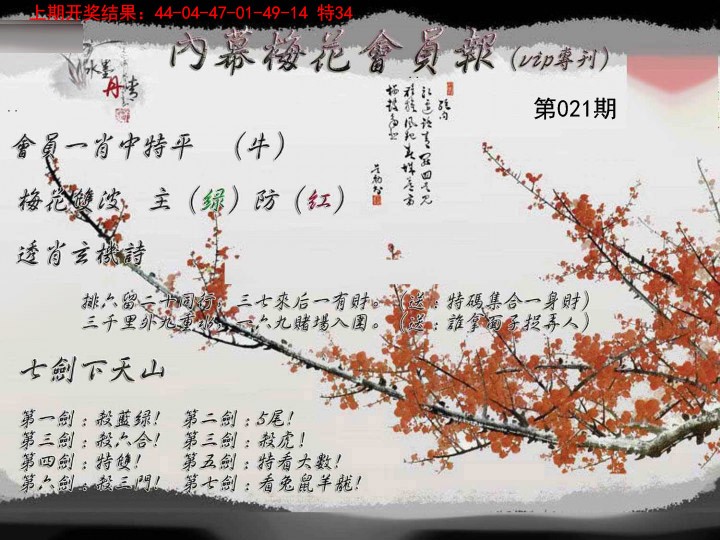 上期开奖结果：44-04-47-01-49-14 特34
內幕梅花會員報（vip專刊）
水墨丹情
第021期
會員一肖中特平 （牛）
梅花雙波 主（绿）防（红）
透肖玄機詩
排六留二十同行，三七來后一有財。（送：特碼集合一身財）
三千里外九重 六九賭場入圍。（送：誰拿面子捉弄人）
七劍下天山
第一劍：殺藍绿！ 第二劍：5尾！
第三劍：殺六合！ 第三劍：殺虎！
第四劍：特雙！ 第五劍：特看大數！
第六劍：殺三門！ 第七劍：看兔鼠羊龍！